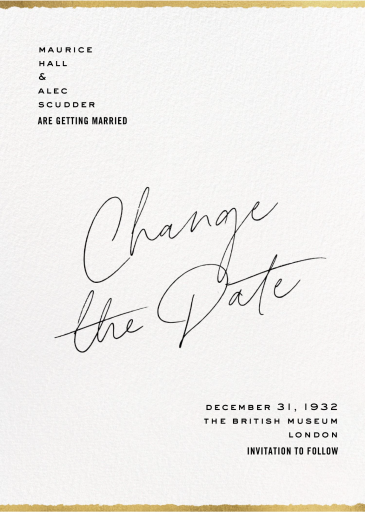 MAURICE
HALL
&
ALEC
SCUDDER
ARE GETTING MARRIED
Change
the Date
DECEMBER 31, 1932
THE BRITISH MUSEUM
LONDON
INVITATION TO FOLLOW